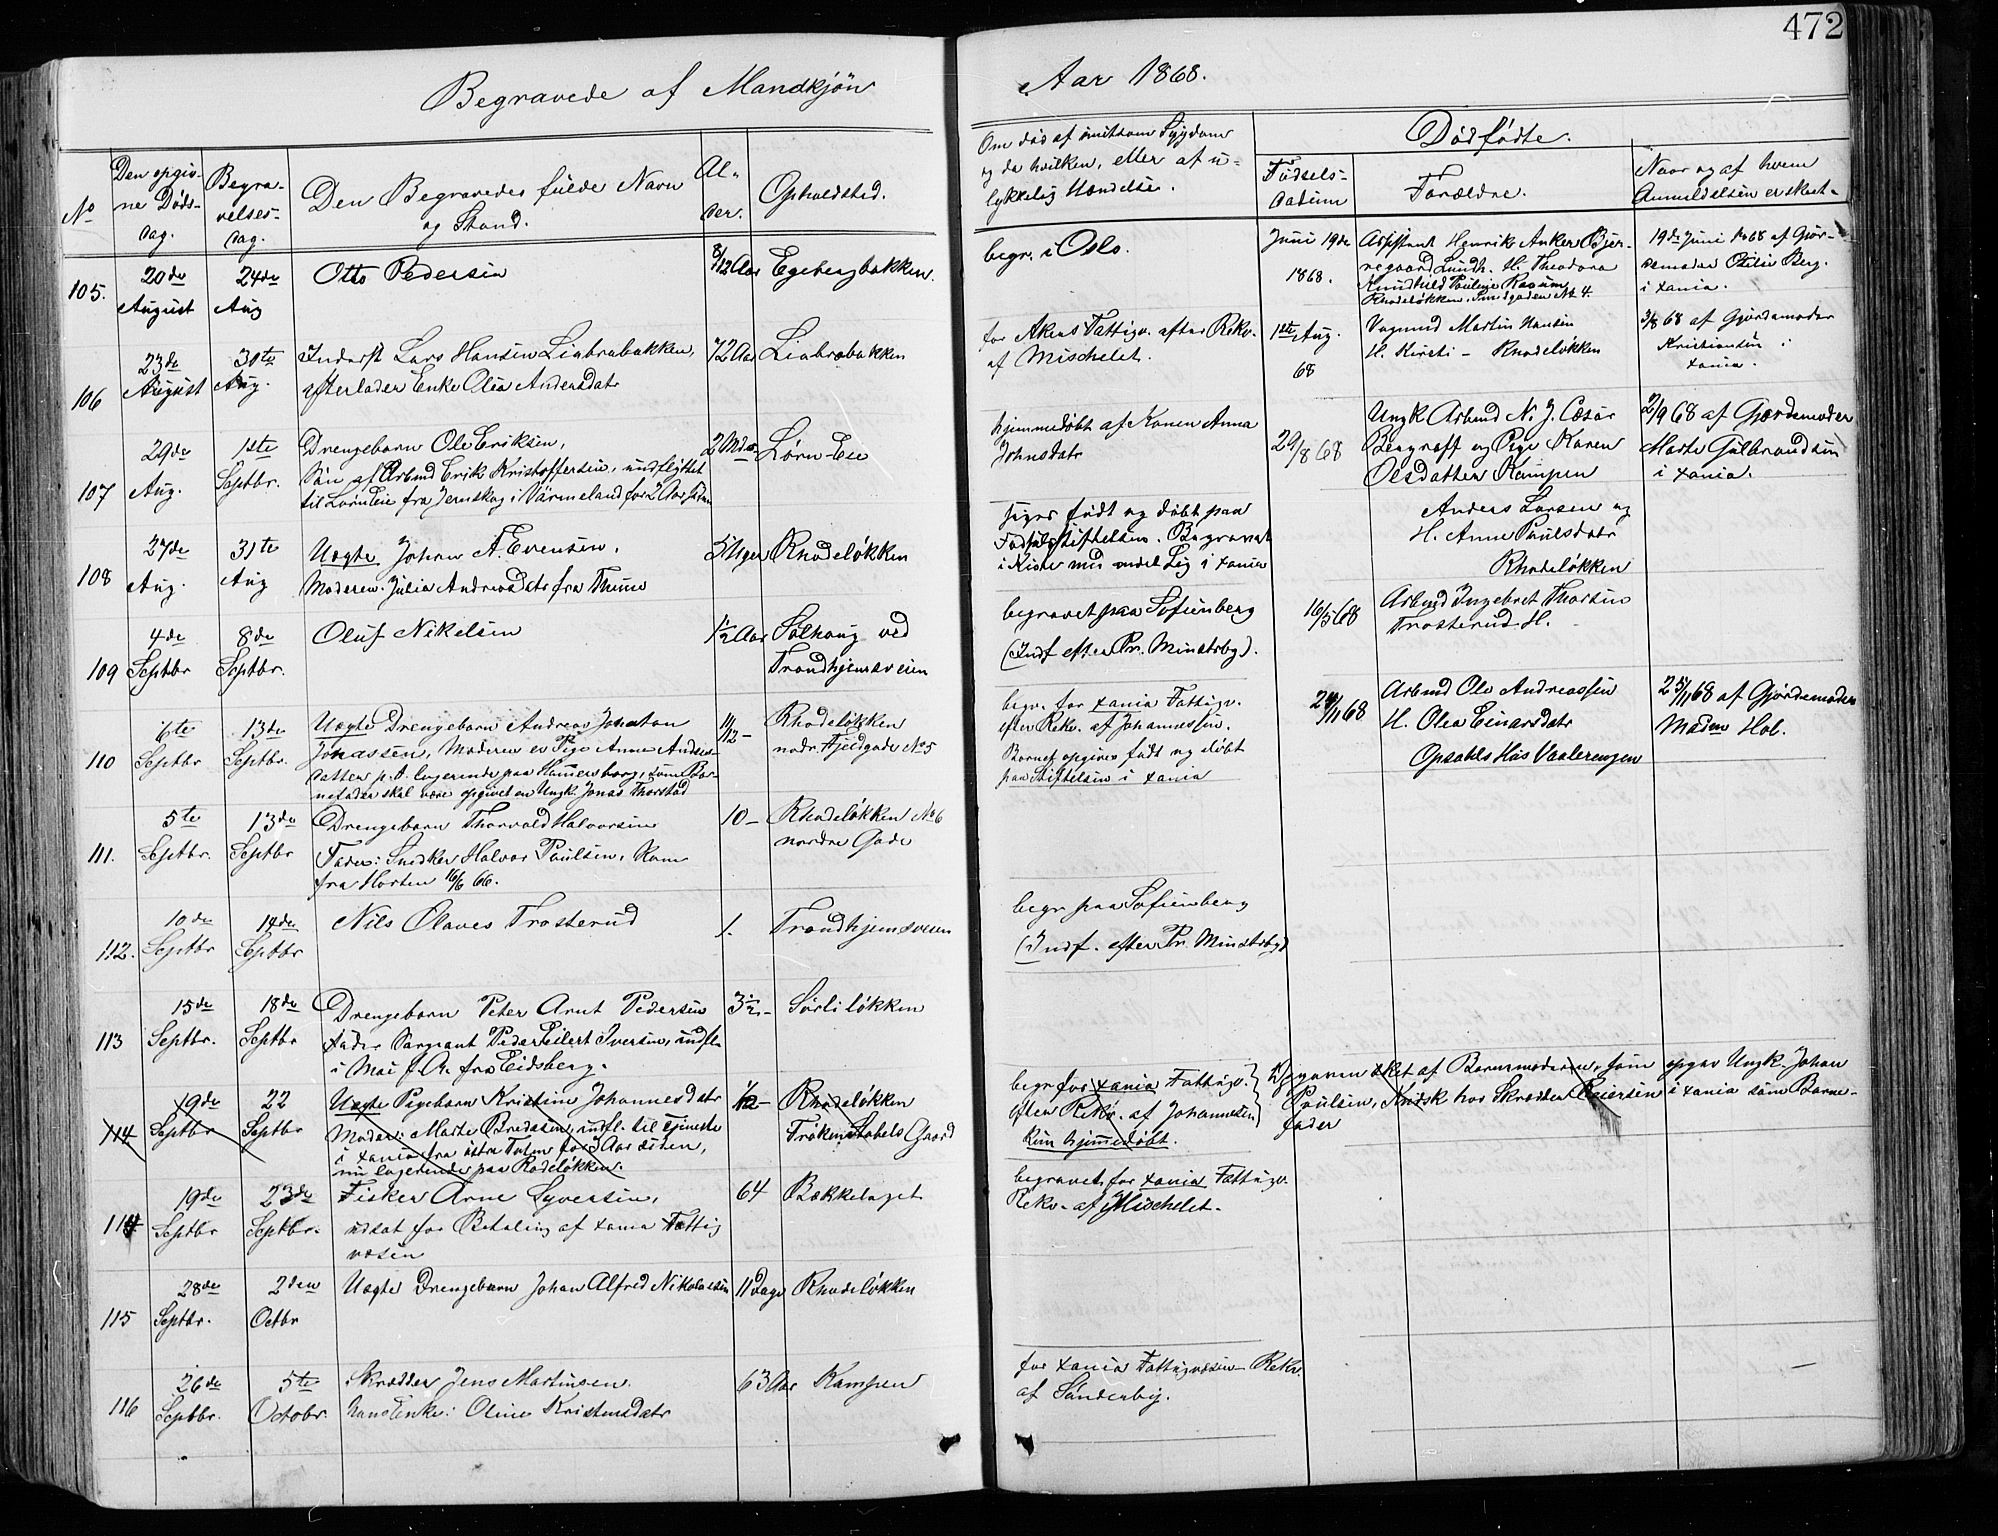 472
Begravede af Mandkjøn
Aar 1868.
No
Den opgiv-
ne Døds-
dag.
Begra-
velses-
dag.
Den Begravedes fulde Navn
og Stand.
Al-
der.
Opholdsted.
Om død af smitsom Sygdom
og da hvilken, eller af u-
lykkelig Hændelse.
Dødfødte.
Fødsels-
datum
Forældre.
Naar og af hvem
Anmeldelsen er skeet.
105. 20de August 24de Aug Otto Pedersen 8/12 Aar Egebergbakken.
begr. i Oslo.
106 23de August 30te Aug. Inderst Lars Hansen Liabrobakken, 72 Aar Liabrobakken
efterlader Enke Olea Andersdatr
for Akers Fattigv. efter Rekv.
af Mischelet.
107 29de Aug. 1ste Septbr. Drengebarn Ole Eriksen, 2 Mdr Lørn-Eie
Søn af Arbmd Erik Kristoffersen, indflyttet
til Lørn Eie fra Jernskog i Värmeland for 2 Aar siden
hjemmedøbt af Konen Anna
Johnsdatr
108 27de Aug. 31te Aug Uægte Johan A. Evensen. 5 Uger Rhodeløkken
Moderen Julia Andreasdatr fra Thune
siges født og døbt paa
Fødselsstiftelsen. Begravet
i Kiste med andet Lig i Xania
109 4de Septbr 8de Septbr. Oluf Nikelsen 1½ Aar Solhaug ved
Trondhjemsveien
begravet paa Sofienberg
(Indf efter Pr. Minstrby).
110 6te Septbr 13de Septbr. Uægte Drengebarn Andreas Jonatan 11/12 - Rhodeløkken
Jonassen, Moderen er Pige Anne Anders-
datter p.t. logerende paa Hammersborg, som Bar-
nefader skal være opgivet en Ungk. Jonas Thorstad
nedr. Fjeldgade No 5
begr. for Xania Fattigv.
efter Rekv. af Johannessen.
Barnet opgives født og døbt
paa Stiftelsen i Xania
111. 5te Septbr. 13de Septbr Drengebarn Thorvald Halvorsen 10 - Rhodeløkken No 6
Fader: Snedker Halvor Paulsen, Kom
fra Horten 16/6 66.
nordre Gade
112. 10de Septbr 14de Septbr Nils Olaves Trosterud 1. Trondhjemsveien
begr paa Sofienberg
(Indf. efter Pr. Minstrby)
113 15de Septbr. 18de Septbr Drengebarn Peter Arnt Pedersen 3½ - Sørli løkken
Fader Sargeant Peder Eilert Iversen, indfl.
i Mai f. A. fra Eidsberg.
114 19de Septbr 22 Septbr Uægte Pigebarn Kristine Johannesdatr 1/12 - Rhodeløkken
Moder: Marte Bredesen, indfl. til Tjeneste
i Xania fra østre Toten for 3 Aar siden,
nu logerende paa Rodeløkken.
Frøken Stabels Gaard
begr for Xania Fattigv.
efter Rekv. af Johannesen
Kun hjemmedøbt.
114 19de Septbr 23de Septbr. Fisker Arne Syversen, 64 Bækkelaget
udsat for Betaling af Xania Fattig
væsen
begravet for Xania Fattigv.
Rekv. af Mischelet.
115 28de Septbr. 2den Octbr Uægte Drengebarn Johan Alfred Nikolaisen 11 Dage Rhodeløkken
116 26de Septbr. 5te Octobr. Skrædder Jens Martinsen. 63 Aar Kampen
hans Enke: Oline Kristensdatr
for Xania Fattigvæsen Rekv.
af Sønderby.
Juni 19de
1868.
Assistent Henrik Anker Bjer-
regaard Lundh. H. Theodora
Pauline
Rhodeløkken,
19de Juni 1868 af Gjor-
demoder Otilie Berg.
i Xania.
1ste Aug.
68
Martin Hansen
H. Kirsti - Rhodeløkken
3/8 68 af Gjordemoder
Kristiansen i
Xania.
29/8 68
Ungk Arbmd N. J. Cæsar
Bergroff og Pige Karen
Olsdatter Kampen
2/9 68 af Gjordemoder
Marte Gulbrandsen
i Xania.
Anders Larsen og
H. Anne Paulsdatr
Rhodeløkken
16/5 68
Arbmd Ingebret Thorsen
Trosterud H.
24/11 68
Arbmd Ole Andreassen
H. Olea Einarsdatr
Opsahls Hus Vaalerengen
25/11 68 af Gjordemoder
Madm Hol.
af Barnemoderen, som opgav Ungk. Johan
Paulsen, hos Skrædder Reiersen i Xania som Barne-
fader